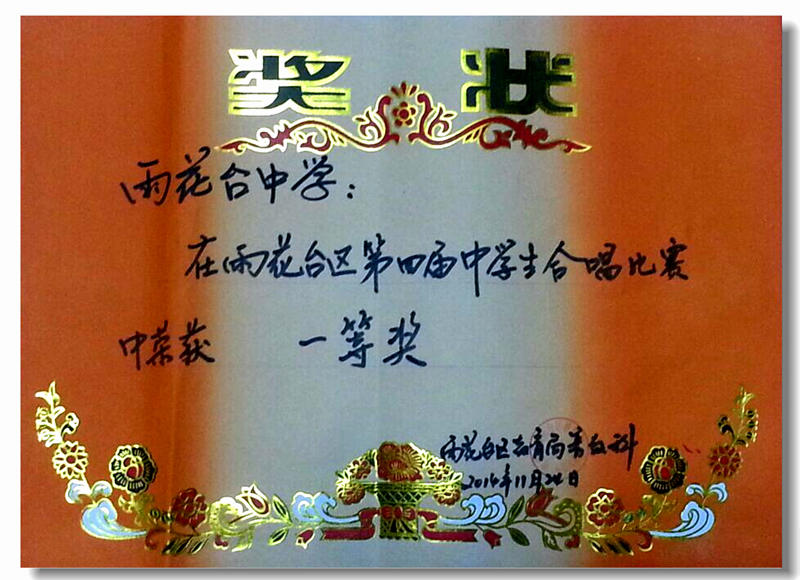 奖状
雨花台中学：
在雨花台区第四届中学生合唱比赛
中荣获 一等奖
雨花台区教育局普教科
2014年11月24日